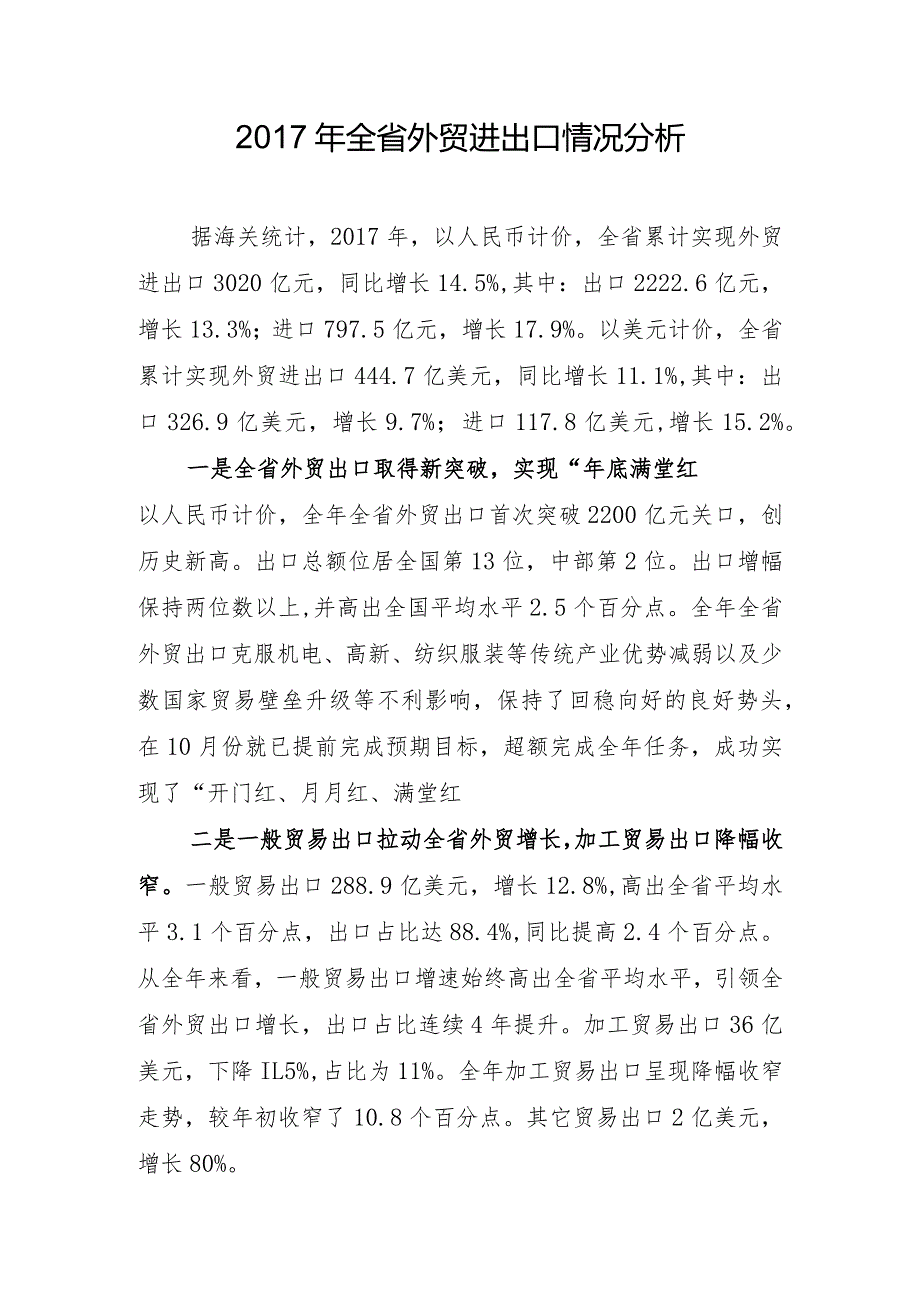 2017年全省外贸进出口情况分析
据海关统计，2017年，以人民币计价，全省累计实现外贸
进出口3020亿元，同比增长14.5%,其中：出口2222.6亿元，
增长13.3%；进口797.5亿元，增长17.9%。以美元计价，全省
累计实现外贸进出口444.7亿美元，同比增长11.1%,其中：出
口326.9亿美元，增长9.7%；进口117.8亿美元,增长15.2%。
一是全省外贸出口取得新突破，实现“年底满堂红
以人民币计价，全年全省外贸出口首次突破2200亿元关口，创
历史新高。出口总额位居全国第13位，中部第2位。出口增幅
保持两位数以上,并高出全国平均水平2.5个百分点。全年全省
外贸出口克服机电、高新、纺织服装等传统产业优势减弱以及少
数国家贸易壁垒升级等不利影响，保持了回稳向好的良好势头，
在10月份就已提前完成预期目标，超额完成全年任务，成功实
现了“开门红、月月红、满堂红
二是一般贸易出口拉动全省外贸增长,加工贸易出口降幅收
窄。一般贸易出口288.9亿美元，增长12.8%,高出全省平均水
平3.1个百分点，出口占比达88.4%,同比提高2.4个百分点。
从全年来看，一般贸易出口增速始终高出全省平均水平，引领全
省外贸出口增长，出口占比连续4年提升。加工贸易出口36亿
美元，下降IL5%,占比为11%。全年加工贸易出口呈现降幅收窄
走势，较年初收窄了10.8个百分点。其它贸易出口2亿美元，
增长80%。